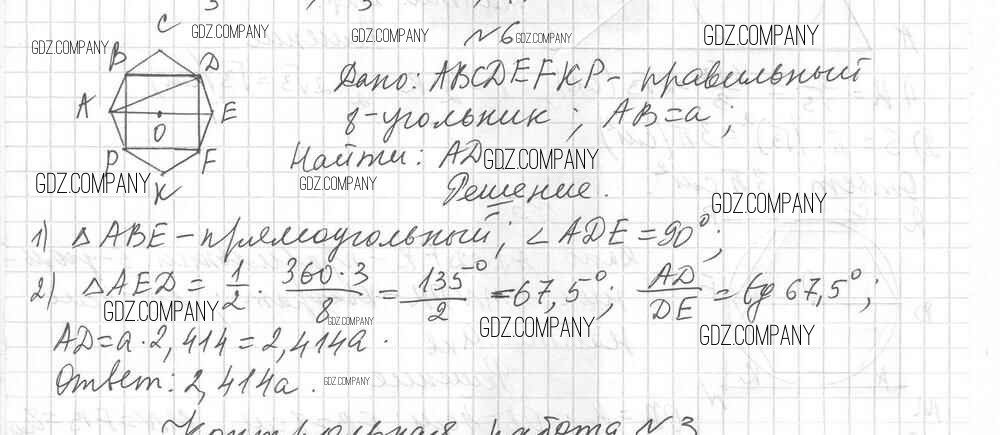 №6
Дано: ABCDEFKP - правильный
8-угольник; AB=a;
Найти: AD
Решение.
C
B D
A E
O
P F
K
1) △ABE - прямоугольный; ∠ADE = 90°;
2) △AED = 1/2 · 360·3/8 = 135°/2 = 67,5°; AD/DE = tg 67,5°;
AD = a·2,414 = 2,414a.
Ответ: 2,414a.
Контрольная работа №3
GDZ.COMPANY
GDZ.COMPANY
GDZ.COMPANY
GDZ.COMPANY
GDZ.COMPANY
GDZ.COMPANY
GDZ.COMPANY
GDZ.COMPANY
GDZ.COMPANY
GDZ.COMPANY
GDZ.COMPANY
GDZ.COMPANY
GDZ.COMPANY
GDZ.COMPANY